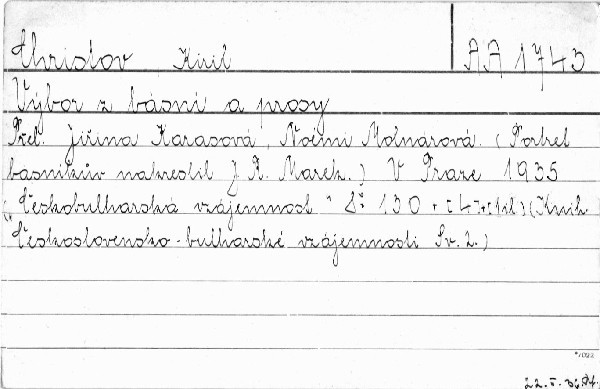 Christov Kiril AA 1743
Výbor z básní a prosy
Přel. Jiřina Karasová, Noemi Molnárová. (Portret
básníkův nakreslil J. R. Marek.) V Praze 1935
„Českobulharská vzájemnost" 8° 130 + [4] + [1 il] (Knih.
Československo-bulharské vzájemnosti Sv. 2.)
22.